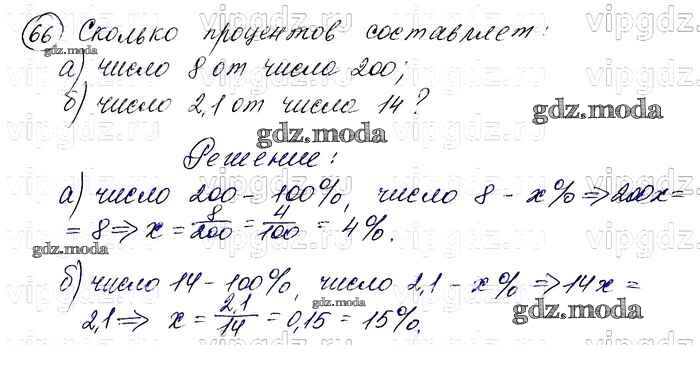 66 Сколько процентов составляет:
gdz.moda
а) число 8 от числа 200;
б) число 2,1 от числа 14?
gdz.moda
gdz.moda
Решение:
а) число 200 - 100%, число 8 - x% ⇒ 200x =
= 8 ⇒ x = 8/200 = 4/100 = 4%.
gdz.moda
б) число 14 - 100%, число 2,1 - x% ⇒ 14x =
gdz.moda
gdz.moda
2,1 ⇒ x = 2,1/14 = 0,15 = 15%.
vipgdz.ru